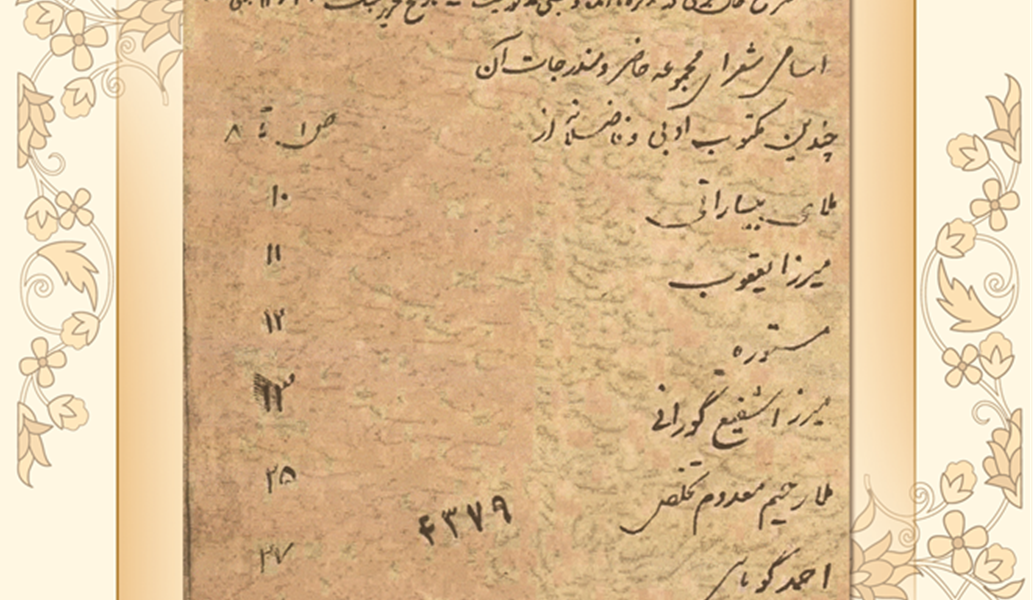 اسامی شعرای مجموعه حاضر و مندرجات آن
چندین مکتوب ادبی و فاضلانه از ص ۱ تا ۸
ملای بیسارانی ۱۰
میرزا یعقوب ۱۱
مستوره ۱۲
میرزا شفیع گورانی ۱۳
ملا رحیم معدوم تخلص ۲۵
۴۳۷۹
احمد ۲۷